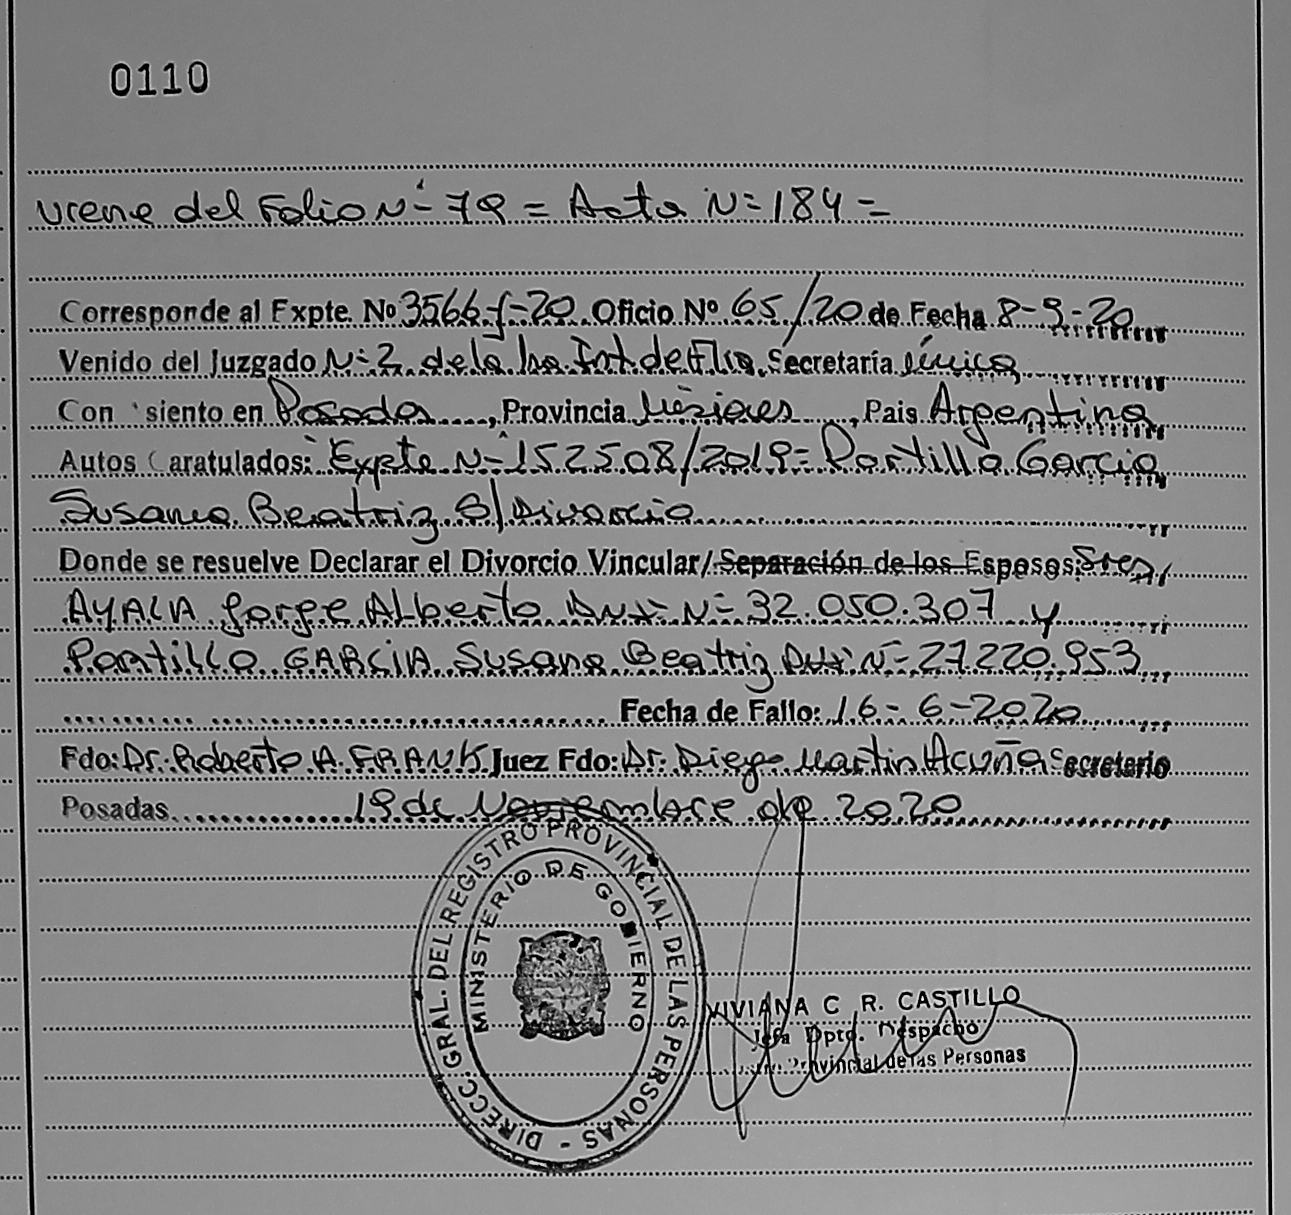 0110
viene del Folio Nº 79 = Acta Nº 184 =
Corresponde al Expte. Nº 3566-f-20 Oficio Nº 65/20 de Fecha 8-9-20
Venido del Juzgado Nº 2 de la 1ra Int de Flia. Secretaría única
Con siento en Posadas, Provincia Misiones, Pais Argentina
Autos Caratulados: Expte Nº 152508/2019 = Portillo Garcia
Susana Beatriz S/ Divorcio
Donde se resuelve Declarar el Divorcio Vincular/ Separación de los Esposos: Sres,
AYALA Jorge Alberto DNI Nº 32.050.307 y
PORTILLO GARCIA Susana Beatriz DNI Nº 27.220.953
Fecha de Fallo: 16-6-2020
Fdo: Dr. Roberto A. FRANK Juez Fdo: Dr. Diego Martin Acuña Secretario
Posadas 19 de Noviembre de 2020
DIRECC. GRAL. DEL REGISTRO PROVINCIAL DE LAS PERSONAS -
MINISTERIO DE GOBIERNO
VIVIANA C R. CASTILLO
Jefa Dpto. Despacho
Provincial de las Personas